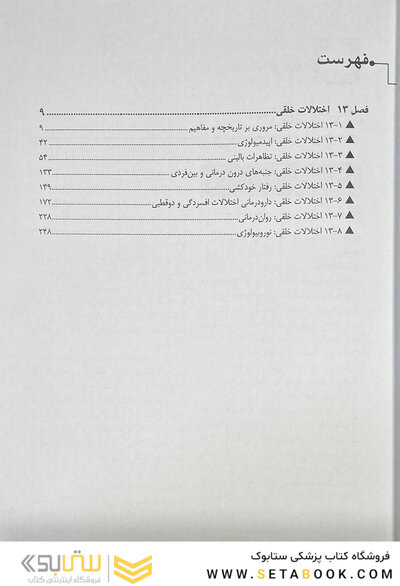 فهرست
فصل ۱۳ اختلالات خلقی ۹
▲ ۱-۱۳ اختلالات خلقی: مروری بر تاریخچه و مفاهیم ۹
▲ ۲-۱۳ اختلالات خلقی: اپیدمیولوژی ۴۲
▲ ۳-۱۳ اختلالات خلقی: تظاهرات بالینی ۵۴
▲ ۴-۱۳ اختلالات خلقی: جنبه‌های درون درمانی و بین‌فردی ۱۳۳
▲ ۵-۱۳ اختلالات خلقی: رفتار خودکشی ۱۴۹
▲ ۶-۱۳ اختلالات خلقی: دارودرمانی اختلالات افسردگی و دوقطبی ۱۷۲
▲ ۷-۱۳ اختلالات خلقی: روان‌درمانی ۲۲۸
▲ ۸-۱۳ اختلالات خلقی: نوروبیولوژی ۲۴۸
فروشگاه کتاب پزشکی ستابوک
WWW.SETABOOK.COM
ستابوک
فروشگاه اینترنتی کتاب